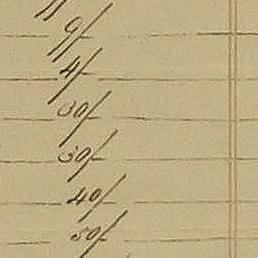 9/-
4/-
30/-
30/-
40/-
50/-